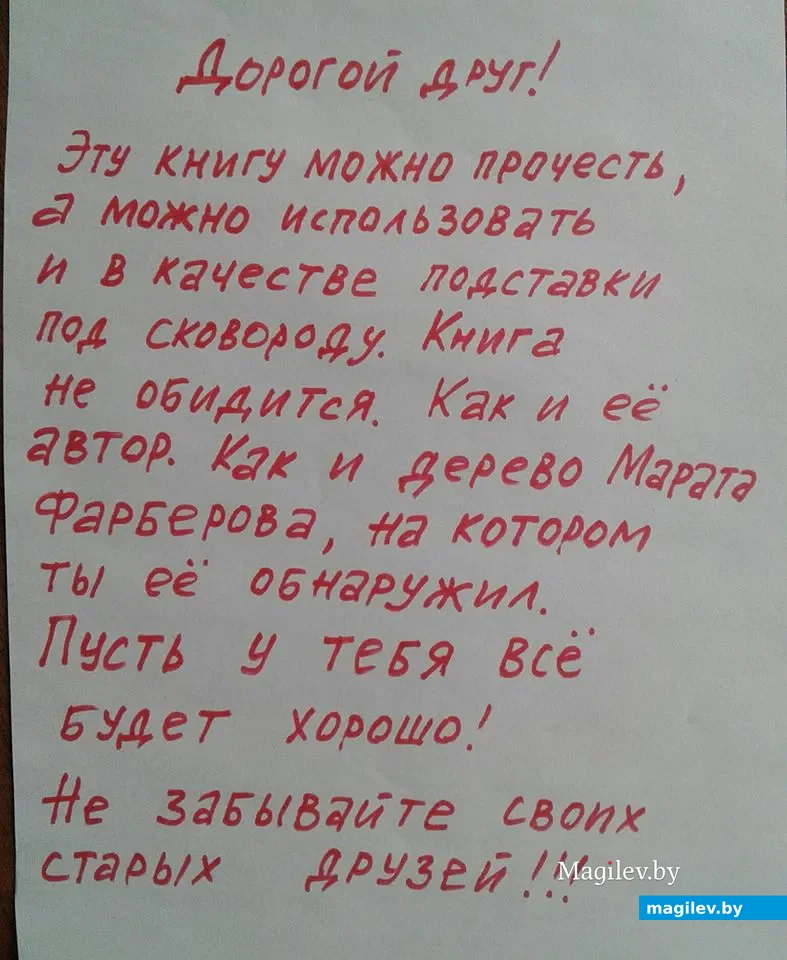 Дорогой друг!
Эту книгу можно прочесть,
а можно использовать
и в качестве подставки
под сковороду. Книга
не обидится. Как и её
автор. Как и дерево Марата
Фарберова, на котором
ты её обнаружил.
Пусть у тебя всё
будет хорошо!
Не забывайте своих
старых друзей!!!
Magilev.by
magilev.by